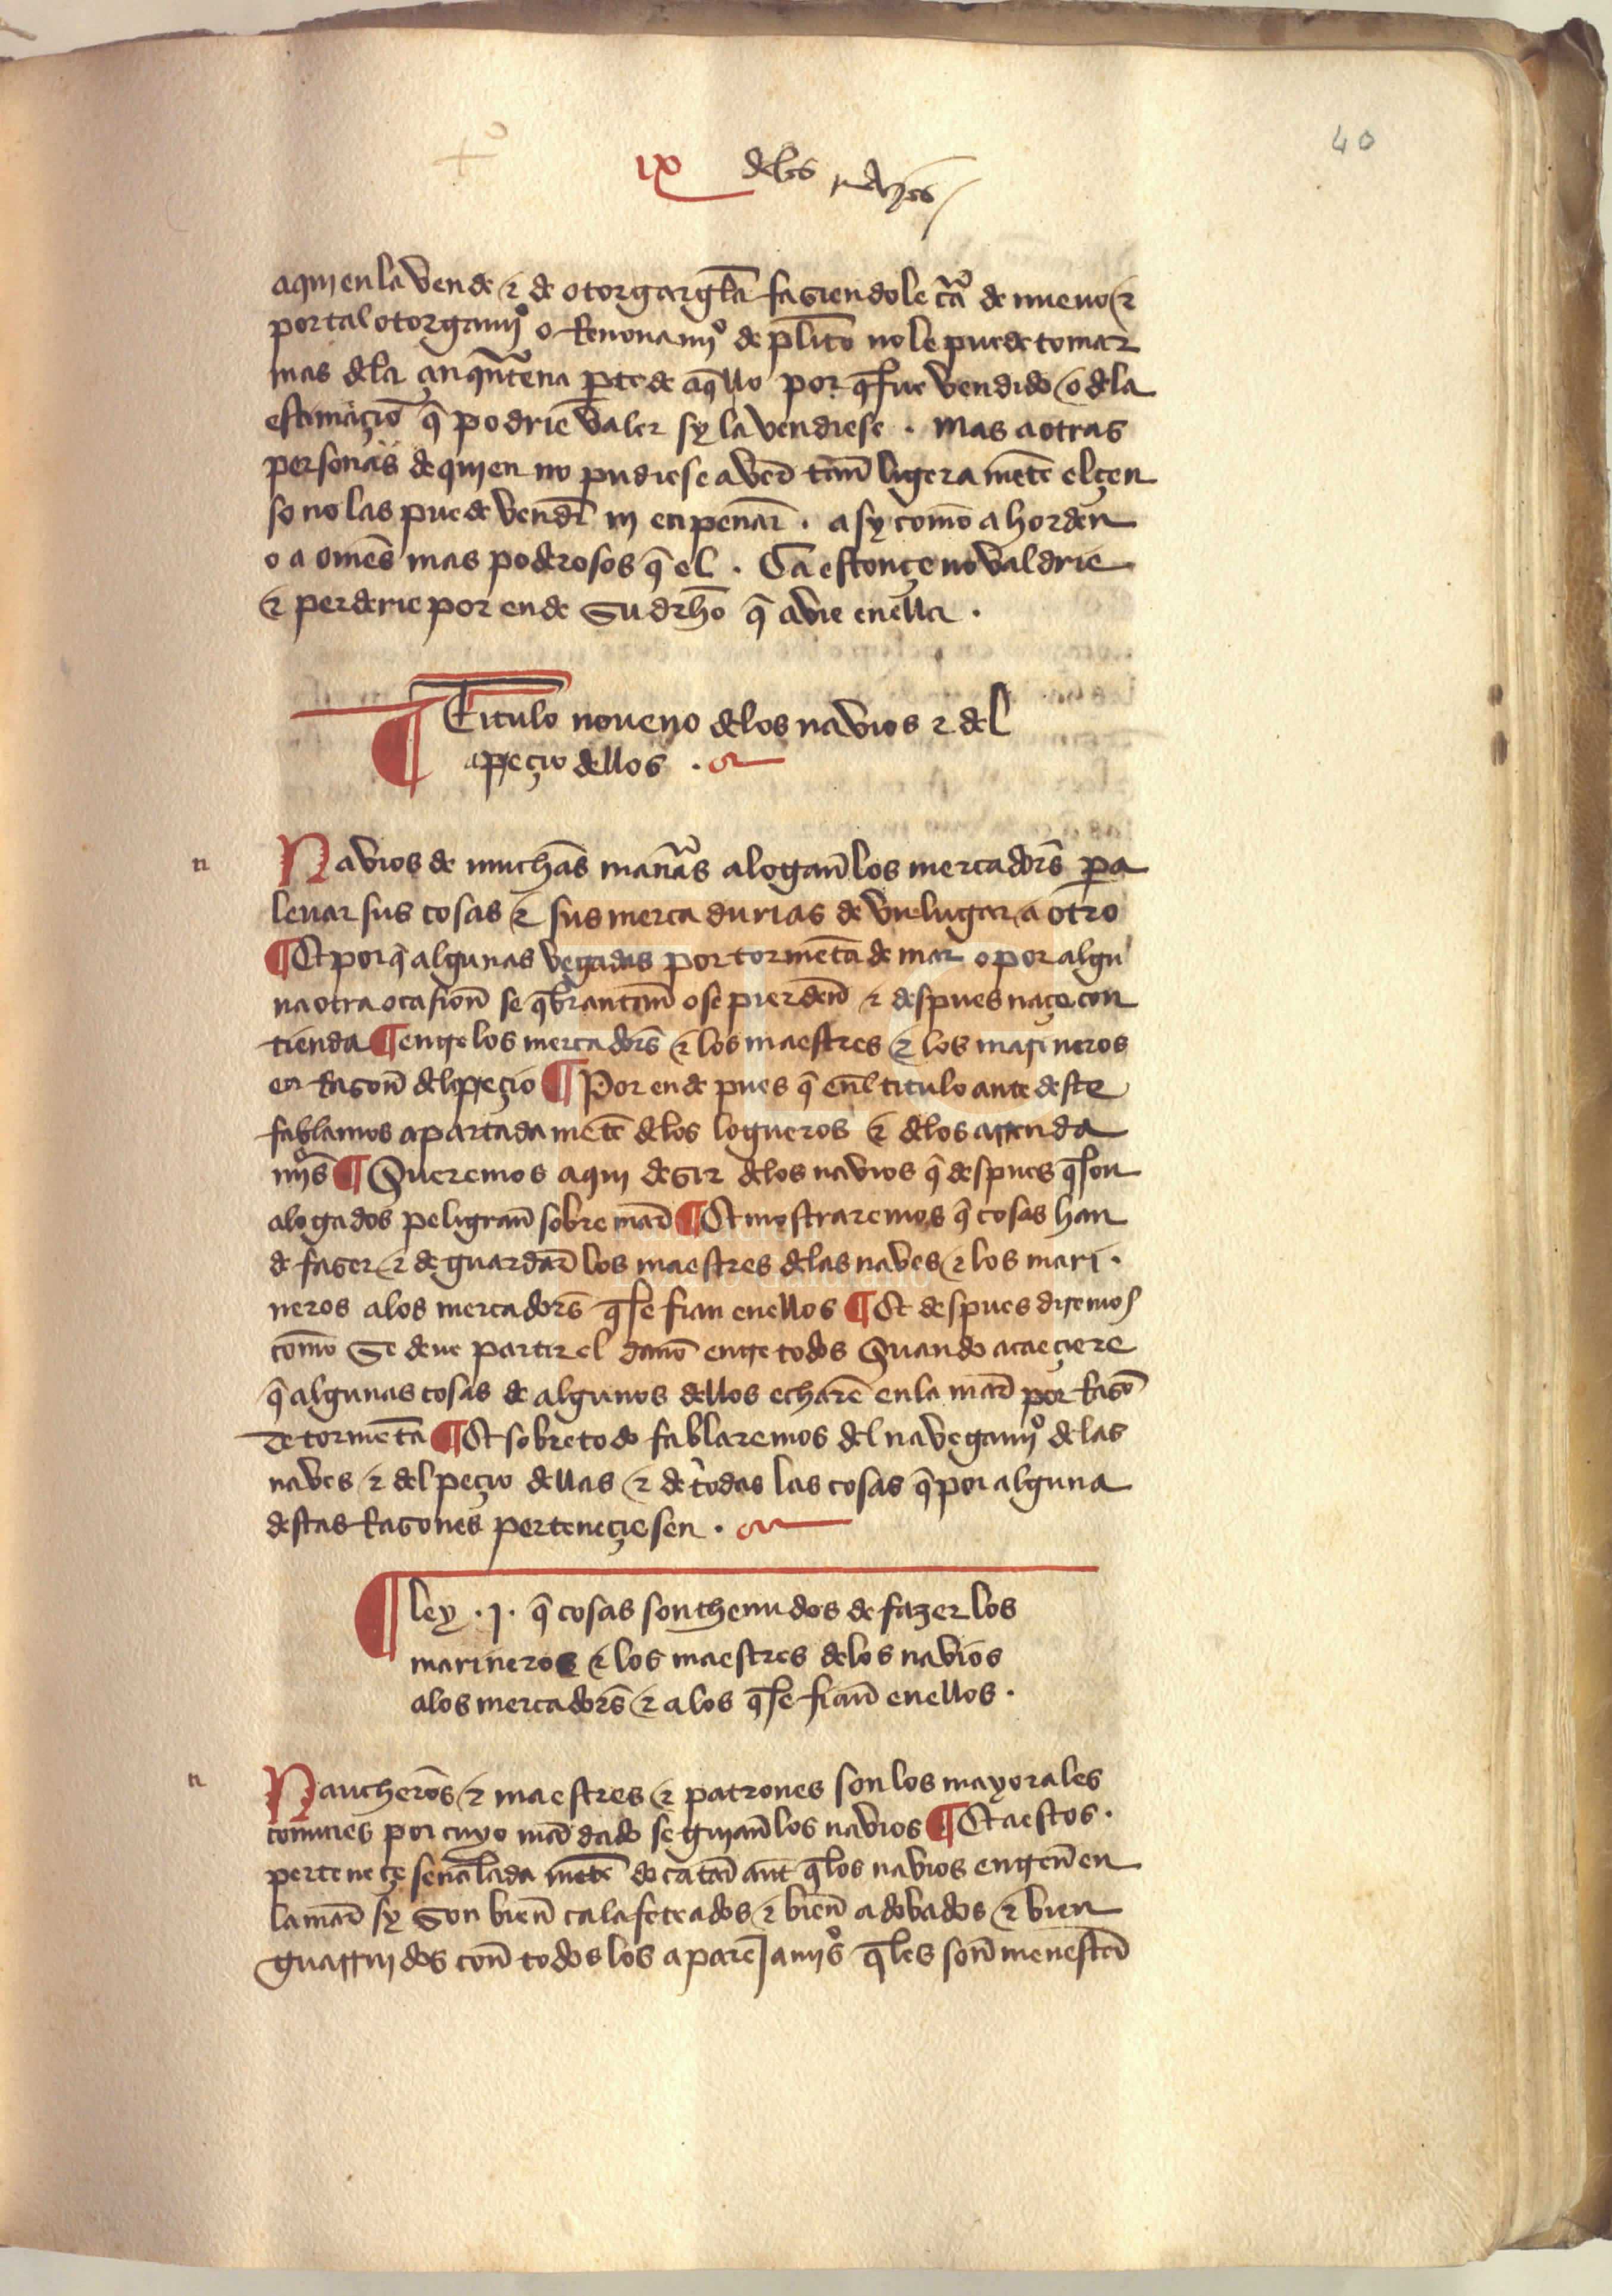 40
IX delos nauyos
aquien la vende & de otorgargela fasiendole carta de nueuo &
por tal otorgamjº o Renouamjº de pleito no le puede tomar
mas dela çinquẽtena parte de aq̃llo por q̃ fue vendido o dela
estimaçiõ q̃ podrie valer sy la vendiese . mas a otras
personas de quien no pudiese aver tan ligera mẽte el çen
so no las puede vender nj enpenar . asy como a horden
o a omẽs mas poderosos q̃ el . Ca estonçe no valdrie
& perderie por ende su drho q̃ avie enella .
¶ Titulo noueno delos navios & del
apreçio dellos .
n
Navios de muchas maneras alogan los mercadores para
leuar sus cosas & sus mercadurias de vn lugar a otro
¶ Et por q̃ algunas vegadas por tormẽta de mar o por algu
na otra ocasion se q̃brantan o se pierden & despues naçe con
tienda ¶ entre los mercadores & los maestres & los marineros
en Rason del preçio ¶ Por ende pues q̃ enel titulo ante deste
fablamos apartada mẽte delos logueros & delos arrenda
mjºs ¶ Queremos aqui desir delos navios q̃ despues q̃ son
alogados peligran sobre mar ¶ Et mostraremos q̃ cosas han
de faser & de guardar los maestres delas naves & los mari .
neros alos mercadores q̃ se fian enellos ¶ Et despues diremos
como se deue partir el dano entre todos Quando acaeçiere
q̃ algunas cosas de algunos dellos echarẽ enla mar por Rasõ
de tormẽta ¶ Et sobre todo fablaremos del navegamjº de las
naves & del peçio dellas & de todas las cosas q̃ por alguna
destas Rasones perteneçiesen .
¶ ley . j . q̃ cosas son thenudos de fazer los
marineros & los maestres delos navios
alos mercadores & alos q̃ se fian enellos .
n
Naucheros & maestres & patrones son los mayorales
comunes por cuyo mãdado se guian los navios ¶ Et aestos .
perteneçe senalada mẽte de catar ante q̃ los navios entren en
la mar sy son bien calafeteados & bien adobados & bien
guarnjdos con todos los aparejamjºs q̃ les son menester